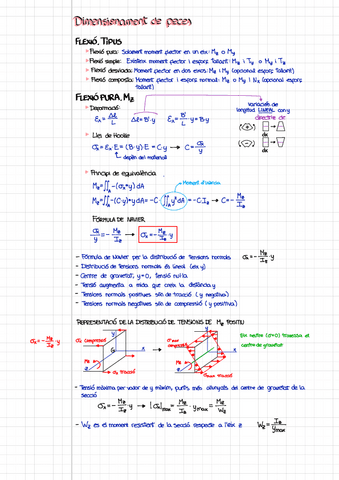 Dimensionament de peces
FLEXIÓ, TIPUS
Flexió pura: Solament moment flector en un eix: Mz o My
Flexió simple: Existeix moment flector i esforç tallant: Mz i Ty o My i Tz
Flexió desviada: Moment flector en dos eixos: Mz i My (opcional esforç tallant)
Flexió composta: Moment flector i esforç normal: Mz o My i Nx (opcional esforç
tallant)
FLEXIÓ PURA, Mz
Deformació:
Ɛx = Δl/L Δl = B'·y Ɛx = B'/L · y = B·y
variación de
longitud LINEAL con y
directriz de
(+)
dx
(-)
dx
Llei de Hooke
σx = Ɛx·E = (B·y)·E = C·y → C = σx/y
depèn del material
Principi de equivalència
Moment d'inèrcia
Mz = ∬A -(σx*y) dA
Mz = ∬A -(C·y)*y dA = -C ∬A y² dA = -C·Iz → C = - Mz/Iz
FÓRMULA DE NAVIER
σx/y = - Mz/Iz → σx = - Mz/Iz · y
- Fórmula de Navier per la distribució de tensions normals σx = - Mz/Iz · y
- Distribució de tensions normals és lineal (eix y)
- Centre de gravetat, y=0, tensió nul·la
- Tensió augmenta a mida que creix la distància y
- Tensions normals positives són de tracció (y negativa)
- Tensions normals negatives són de compressió (y positiva)
REPRESENTACIÓ DE LA DISTRIBUCIÓ DE TENSIONS DE Mz POSITIU
σx = - Mz/Iz · y
σx compressió
y
G
x
Mz
z
σx tracció
y
σmax compressió
x
Mz
z
σmax tracció
Eix neutre (σ=0) travessa el
centre de gravetat
- Tensió màxima per valor de y màxim, punts més allunyats del centre de gravetat de la
secció
σx = - Mz/Iz · y → |σx|max = Mz/Iz · ymax = Mz/Wz
- Wz és el moment resistent de la secció respecte a l'eix z Wz = Iz/ymax